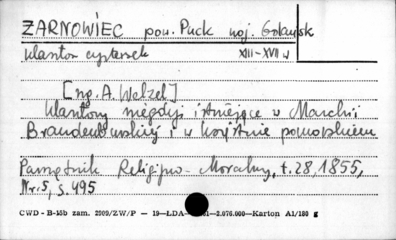 ŻARNOWIEC pow. Puck woj. Gdańsk
klasztor cysterek XIII-XVII w
[ng. A. Welzel]
Klasztory niegdyś istniejące w Marchii
Brandeburskiej i w księstwie pomorskiem
Pamiętnik Religijno-Moralny, t.28, 1855,
Nr.5, s.495
CWD - B-15b zam. 2909/ZW/P — 19—ŁDA— 61—2.070.000—Karton A1/180 g